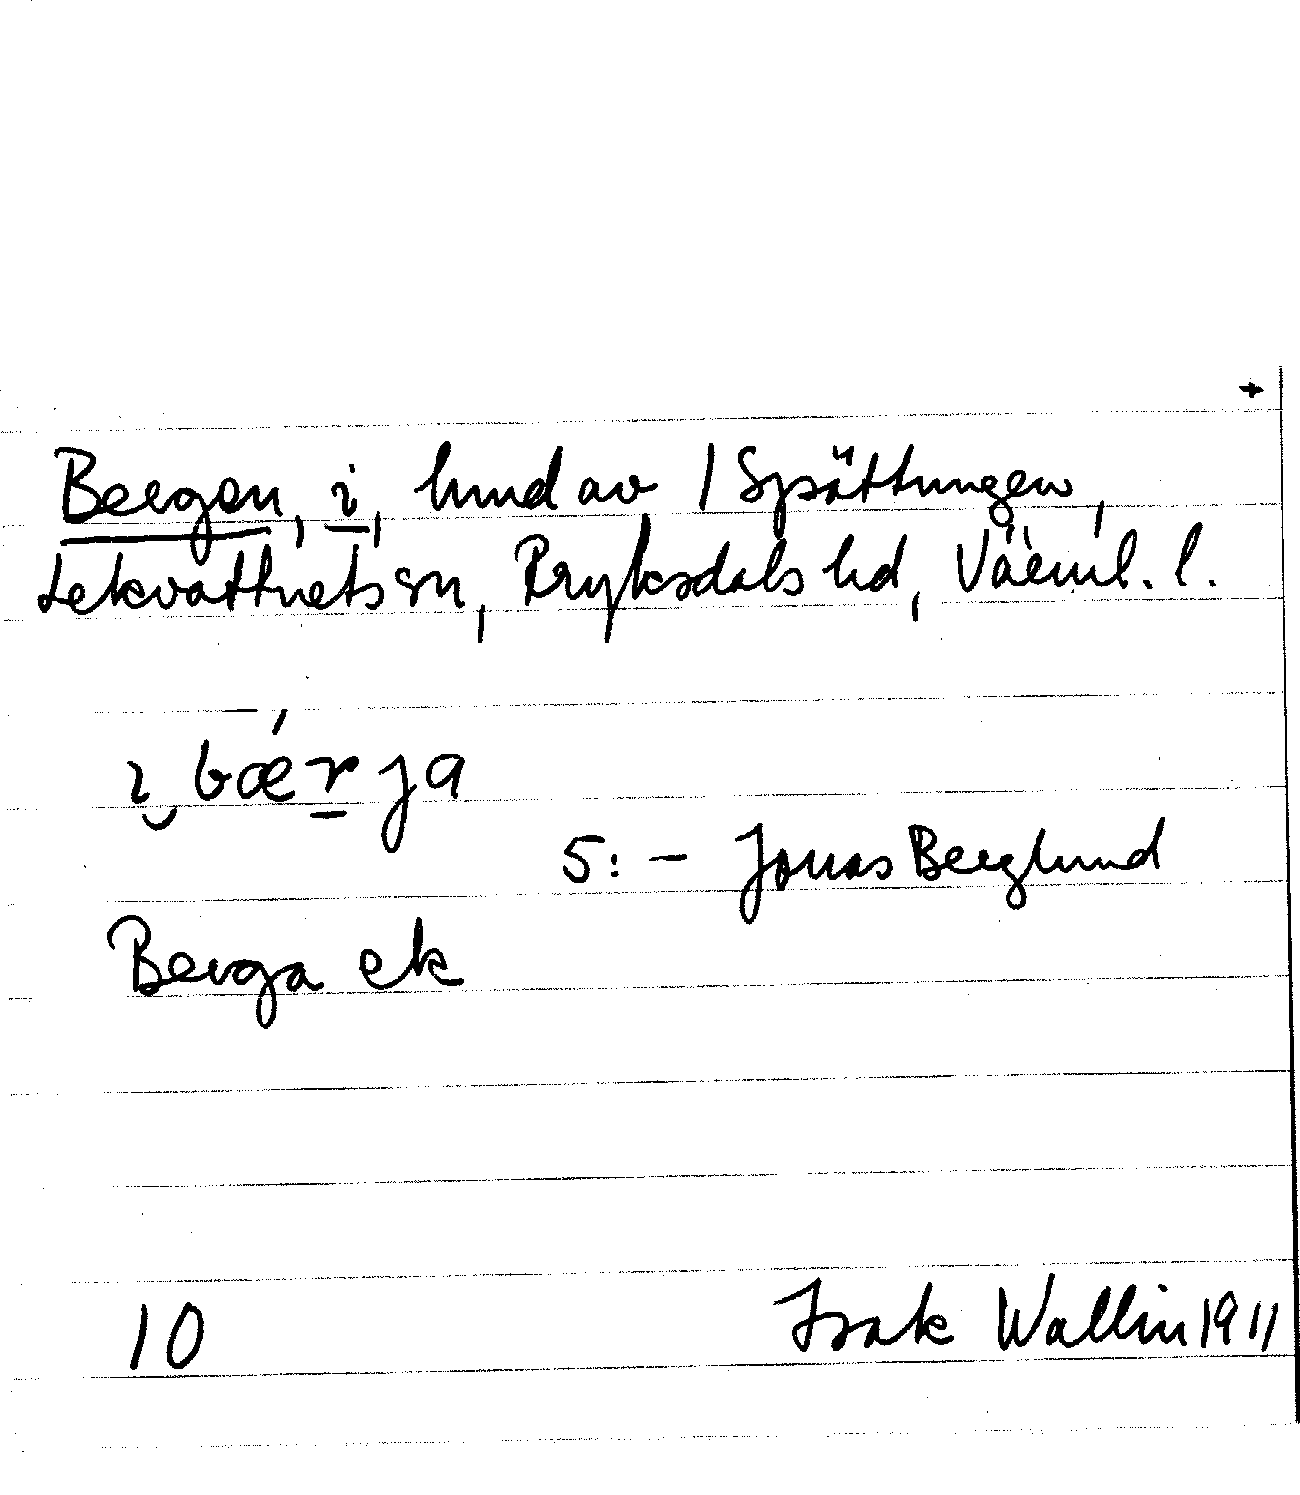 +
Bergen, i, hmd av 1 Spättungen,
Lekvattnets sn, Fryksdals hd, Värml. l.
ı‿bǽr̲ja
5: – Jonas Berglund
Berga ek
10 Isak Wallin 1911